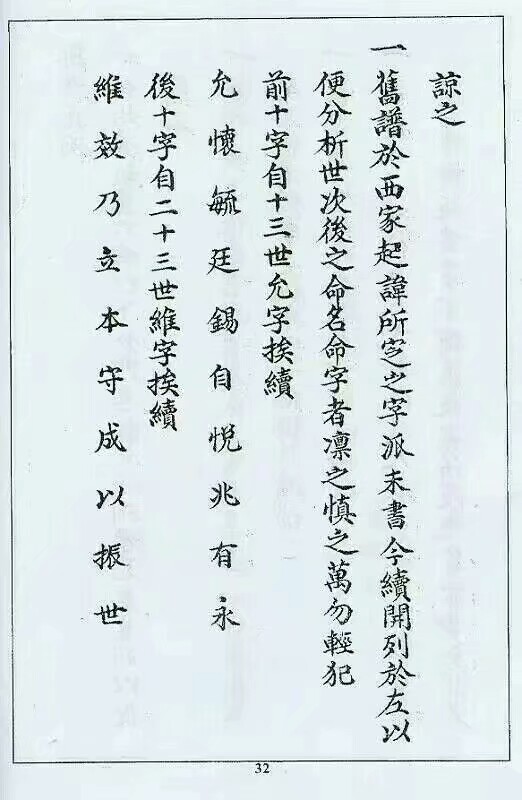 諒之
一舊譜於西家起諱所定之字派未書今續開列於左以
便分析世次後之命名命字者凛之慎之萬勿輕犯
前十字自十三世允字挨續
允懷毓廷錫自悦兆有永
後十字自二十三世維字挨續
維效乃立本守成以振世
32